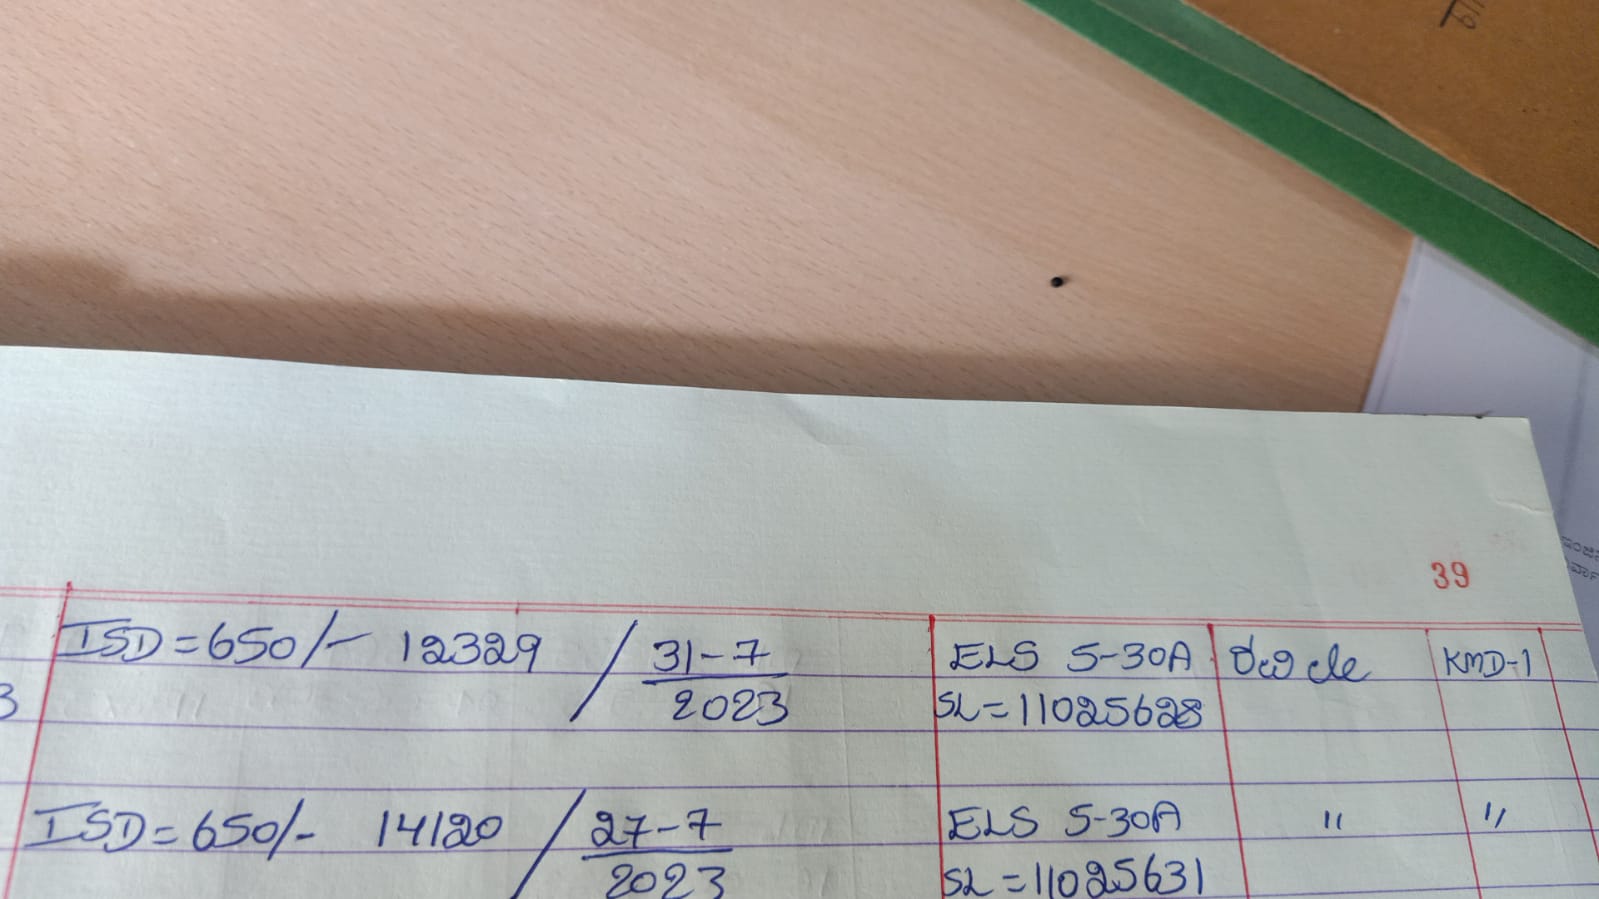 39
ISD = 650/- 12329 / 31-7
2023
ELS 5-30A
SL = 11025628
KMD-1
3
ISD = 650/- 14120 / 27-7
2023
ELS 5-30A
SL = 11025631
" "